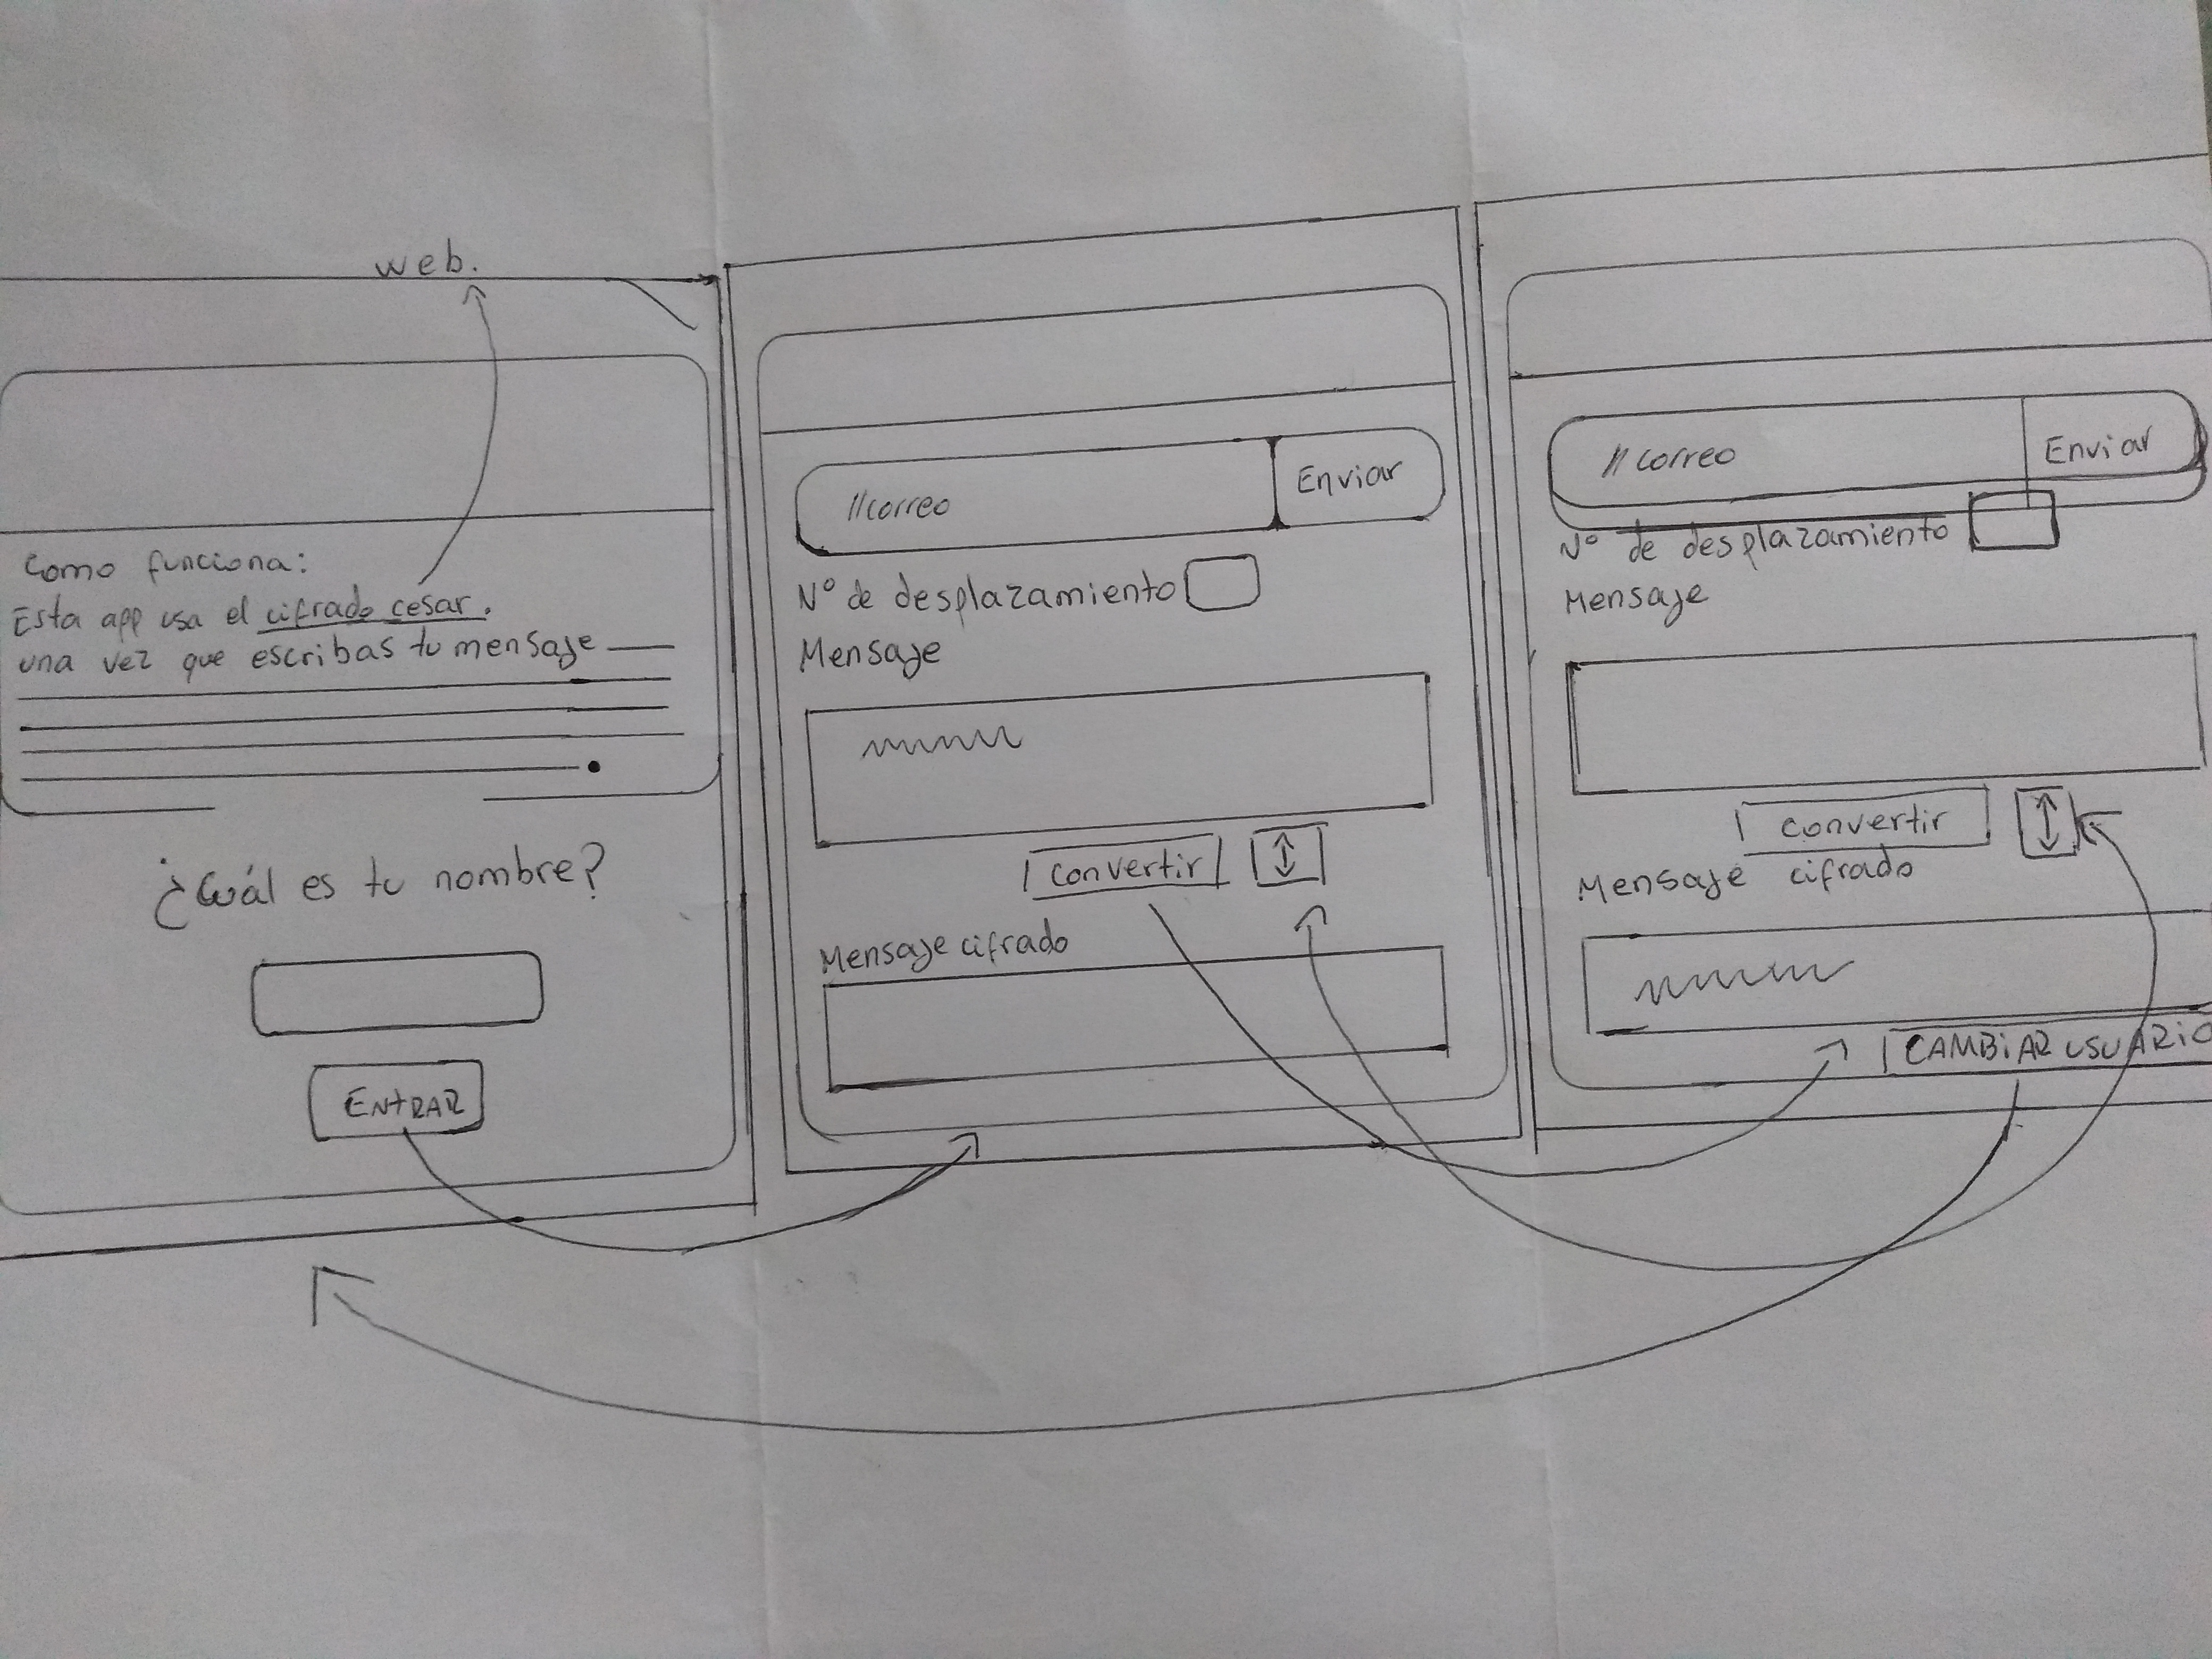 web.
Como funciona:
Esta app usa el cifrado cesar.
una vez que escribas tu mensaje
¿Cuál es tu nombre?
ENTRAR
//correo
Enviar
N° de desplazamiento
Mensaje
convertir
Mensaje cifrado
//correo
Enviar
N° de desplazamiento
Mensaje
convertir
Mensaje cifrado
CAMBiAR USUARiO